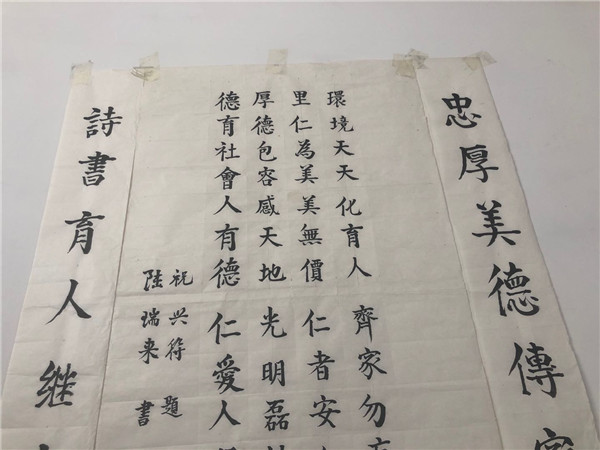 忠厚美德傳
環境天天化育人 齊家勿
里仁為美美無價 仁者安
厚德包容感天地 光明磊
德育社會人有德 仁愛人
祝兴符 題
陸瑞来 書
詩書育人继